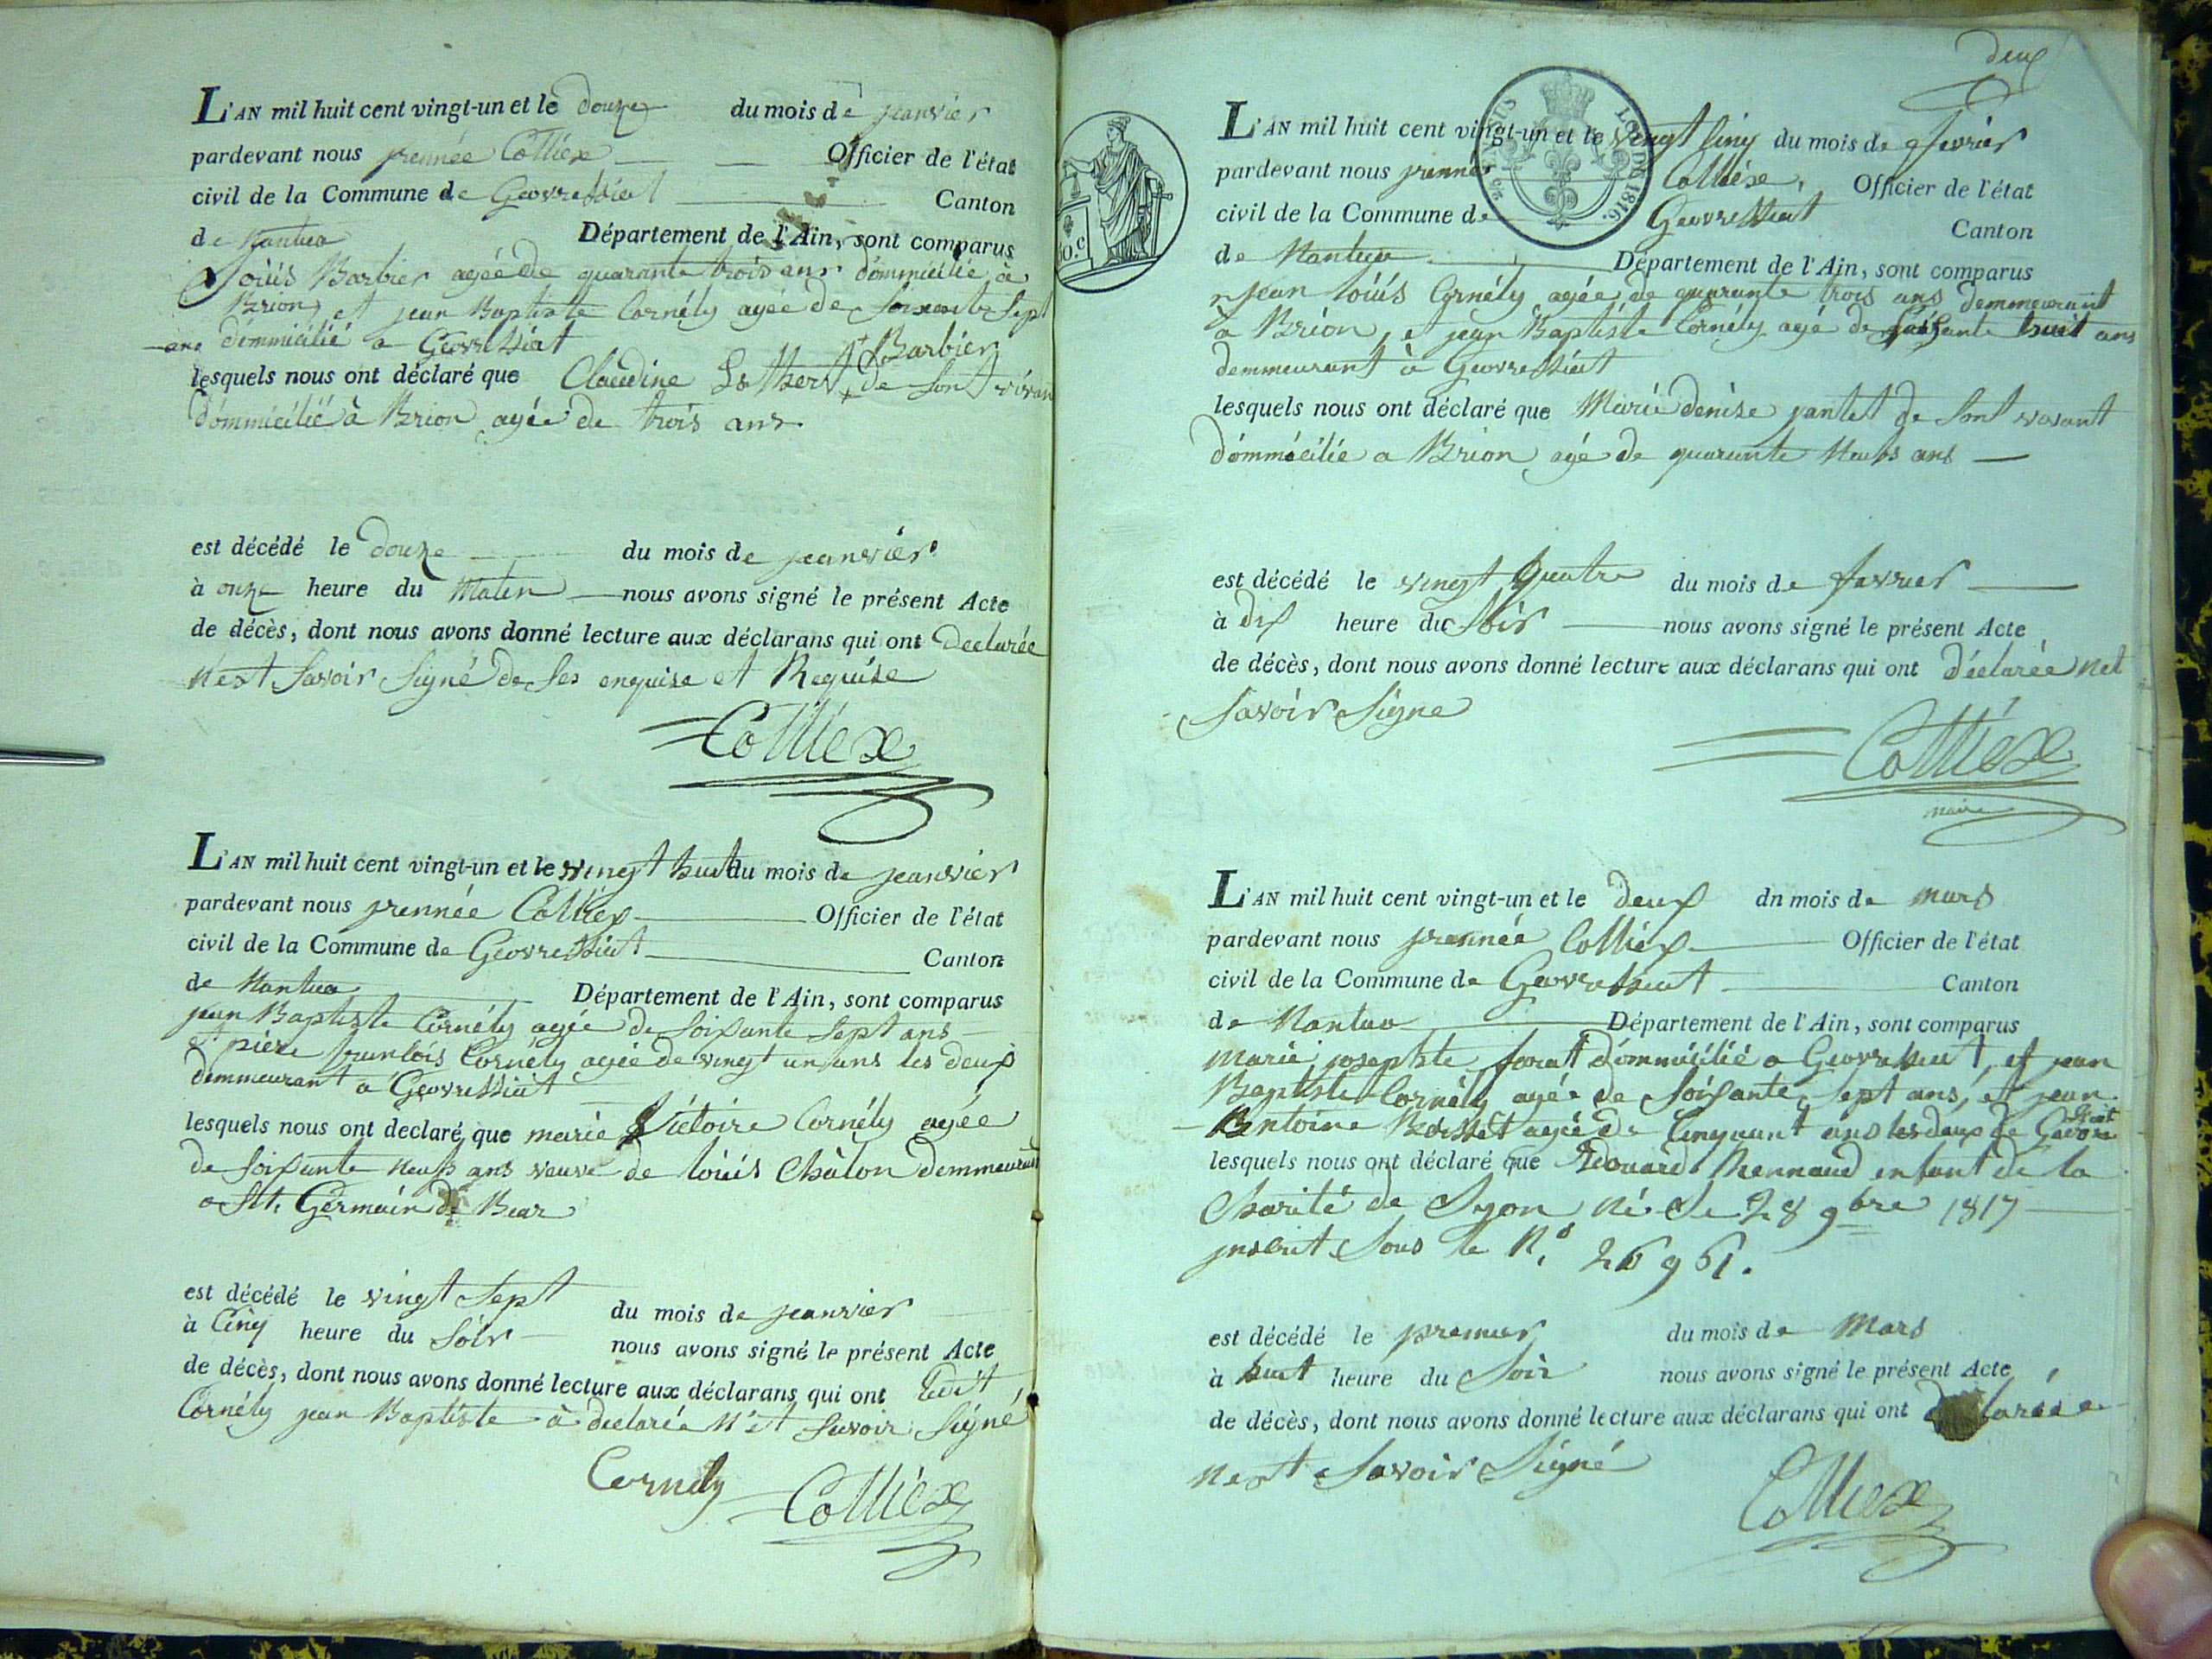 L'AN mil huit cent vingt-un et le douze du mois de jeanvier
pardevant nous jrennée Colliex Officier de l'état
civil de la Commune de Geovressiat Canton
de Nantua Département de l'Ain, sont comparus
Loüis Barbier agée de quarante trois ans dómmicilié à
Brion, et jean Baptiste Cornély agée de soixante sept
ans dómmicilié a Geovressiat
+ Barbier
lesquels nous ont déclaré que Claudine + de sont vivant
dómmicilié à Brion agée de trois ans
est décédé le douze du mois de jeanvier
à onze heure du Matin nous avons signé le présent Acte
de décès, dont nous avons donné lecture aux déclarans qui ont declarée
nest savoir signé de ses enquise et Requise
Colliex
L'AN mil huit cent vingt-un et le vingt huit du mois de jeanvier
pardevant nous jrennée Colliex Officier de l'état
civil de la Commune de Geovressiat Canton
de Nantua Département de l'Ain, sont comparus
jean Baptiste Cornély agée de soixante sept ans
et pière franlois Cornély agée de vingt un ans les deux
demmeurant a Geovressiat
lesquels nous ont declaré que marie Victoire Cornély agée
de soixante neufs ans veuve de loüis Châlon demmeurant
a St. Germain de Bear
est décédé le vingt sept du mois de jeanvier
à Cinq heure du soir nous avons signé le présent Acte
de décès, dont nous avons donné lecture aux déclarans qui ont Ledit
Cornély jean Baptiste à declarée n'est savoir signé
Cornely Colliex
deux
L'AN mil huit cent vingt-un et le vingt Cinq du mois de fevrier
pardevant nous jrennée Colliex, Officier de l'état
civil de la Commune de Geovressiat Canton
de Nantua Département de l'Ain, sont comparus
LOI DE 1816.
jean loüis Cornély agée de quarante trois ans demmeurant
à Brion, et jean Baptiste Cornély agé de soixante huit ans
demmeurant à Geovressiat
lesquels nous ont déclaré que Marie denise jantet de sont vivant
dómmécilié a Brion agé de quarante neufs ans
est décédé le vingt quatre du mois de favrier
à dix heure du soir nous avons signé le présent Acte
de décès, dont nous avons donné lecture aux déclarans qui ont déclarée nest
savoir signe
Colliex
maire
L'AN mil huit cent vingt-un et le deux dn mois de mars
pardevant nous jrennée Colliex Officier de l'état
civil de la Commune de Geovressiat Canton
de Nantua Département de l'Ain, sont comparus
marie josephte dómmicilié a Geovressiat, et jean
Baptiste Cornély agée de soixante sept ans, et jean
Antoine Bosset agée de Cinquant ans les deux de Geovressiat
lesquels nous ont déclaré que Edouard Mennaud enfant de la
Charité de Lyon né le 28 9bre 1817
jnscrit sous le N.o 26961.
est décédé le premier du mois de Mars
à huit heure du soir nous avons signé le présent Acte
de décès, dont nous avons donné lecture aux déclarans qui ont declarée
nest savoir signé
Colliex